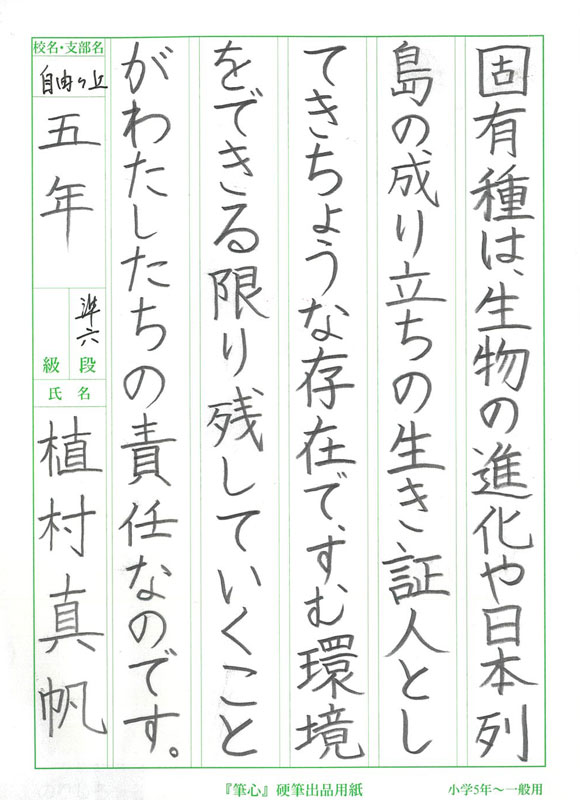 固有種は、生物の進化や日本列
島の、成り立ちの生き証人とし
てきちょうな存在で、すむ環境
をできる限り残していくこと
がわたしたちの責任なのです。
校名・支部名
自由ヶ丘
五年
準六
段
級
氏名
植村真帆
『筆心』硬筆出品用紙
小学5年〜一般用